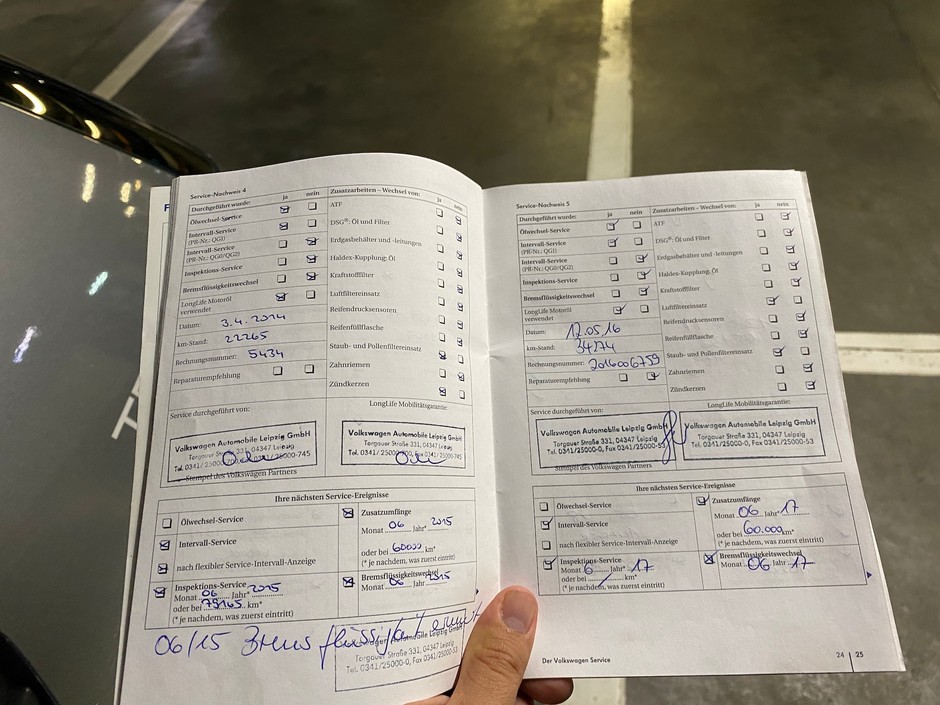 Service-Nachweis 4
Durchgeführt wurde: ja nein
Ölwechsel-Service
Intervall-Service
(PR-Nr.: QG1)
Intervall-Service
(PR-Nr.: QG0/QG2)
Inspektions-Service
Bremsflüssigkeitswechsel
LongLife Motoröl
verwendet
Datum: 3.4.2014
km-Stand: 22265
Rechnungsnummer: 5434
Reparaturempfehlung
Zusatzarbeiten – Wechsel von: ja nein
ATF
DSG®: Öl und Filter
Erdgasbehälter und -leitungen
Haldex-Kupplung: Öl
Kraftstofffilter
Luftfiltereinsatz
Reifendrucksensoren
Reifenfüllflasche
Staub- und Pollenfiltereinsatz
Zahnriemen
Zündkerzen
Service durchgeführt von:
Volkswagen Automobile Leipzig GmbH
Torgauer Straße 331, 04347 Leipzig
Tel. 0341/25000-745
Stempel des Volkswagen Partners
LongLife Mobilitätsgarantie:
Volkswagen Automobile Leipzig GmbH
Torgauer Straße 331, 04347 Leipzig
Tel. 0341/25000-700, Fax 0341/25000-745
Ihre nächsten Service-Ereignisse
Ölwechsel-Service
Intervall-Service
nach flexibler Service-Intervall-Anzeige
Inspektions-Service
Monat 06 Jahr* 2015
oder bei km*
(* je nachdem, was zuerst eintritt)
Zusatzumfänge
Monat 06 Jahr* 2015
oder bei 60000 km*
(* je nachdem, was zuerst eintritt)
Bremsflüssigkeitswechsel
Monat 06 Jahr 2015
06/15 Bremsflüssigkeit
Volkswagen Automobile Leipzig GmbH
Torgauer Straße 331, 04347 Leipzig
Tel. 0341/25000-0, Fax 0341/25000-53
Service-Nachweis 5
Durchgeführt wurde: ja nein
Ölwechsel-Service
Intervall-Service
(PR-Nr.: QG1)
Intervall-Service
(PR-Nr.: QG0/QG2)
Inspektions-Service
Bremsflüssigkeitswechsel
LongLife Motoröl
verwendet
Datum: 12.05.16
km-Stand: 34274
Rechnungsnummer: 2016006759
Reparaturempfehlung
Zusatzarbeiten – Wechsel von: ja nein
ATF
DSG®: Öl und Filter
Erdgasbehälter und -leitungen
Haldex-Kupplung: Öl
Kraftstofffilter
Luftfiltereinsatz
Reifendrucksensoren
Reifenfüllflasche
Staub- und Pollenfiltereinsatz
Zahnriemen
Zündkerzen
Service durchgeführt von:
Volkswagen Automobile Leipzig GmbH
Torgauer Straße 331, 04347 Leipzig
Tel. 0341/25000-0, Fax 0341/25000-53
Stempel des Volkswagen Partners
LongLife Mobilitätsgarantie:
Volkswagen Automobile Leipzig GmbH
Torgauer Straße 331, 04347 Leipzig
Tel. 0341/25000-0, Fax 0341/25000-53
Ihre nächsten Service-Ereignisse
Ölwechsel-Service
Intervall-Service
nach flexibler Service-Intervall-Anzeige
Inspektions-Service
Monat 6 Jahr* 17
oder bei / km*
(* je nachdem, was zuerst eintritt)
Zusatzumfänge
Monat 06 Jahr* 17
oder bei 60.000 km*
(* je nachdem, was zuerst eintritt)
Bremsflüssigkeitswechsel
Monat 06 Jahr 17
Der Volkswagen Service
24 | 25